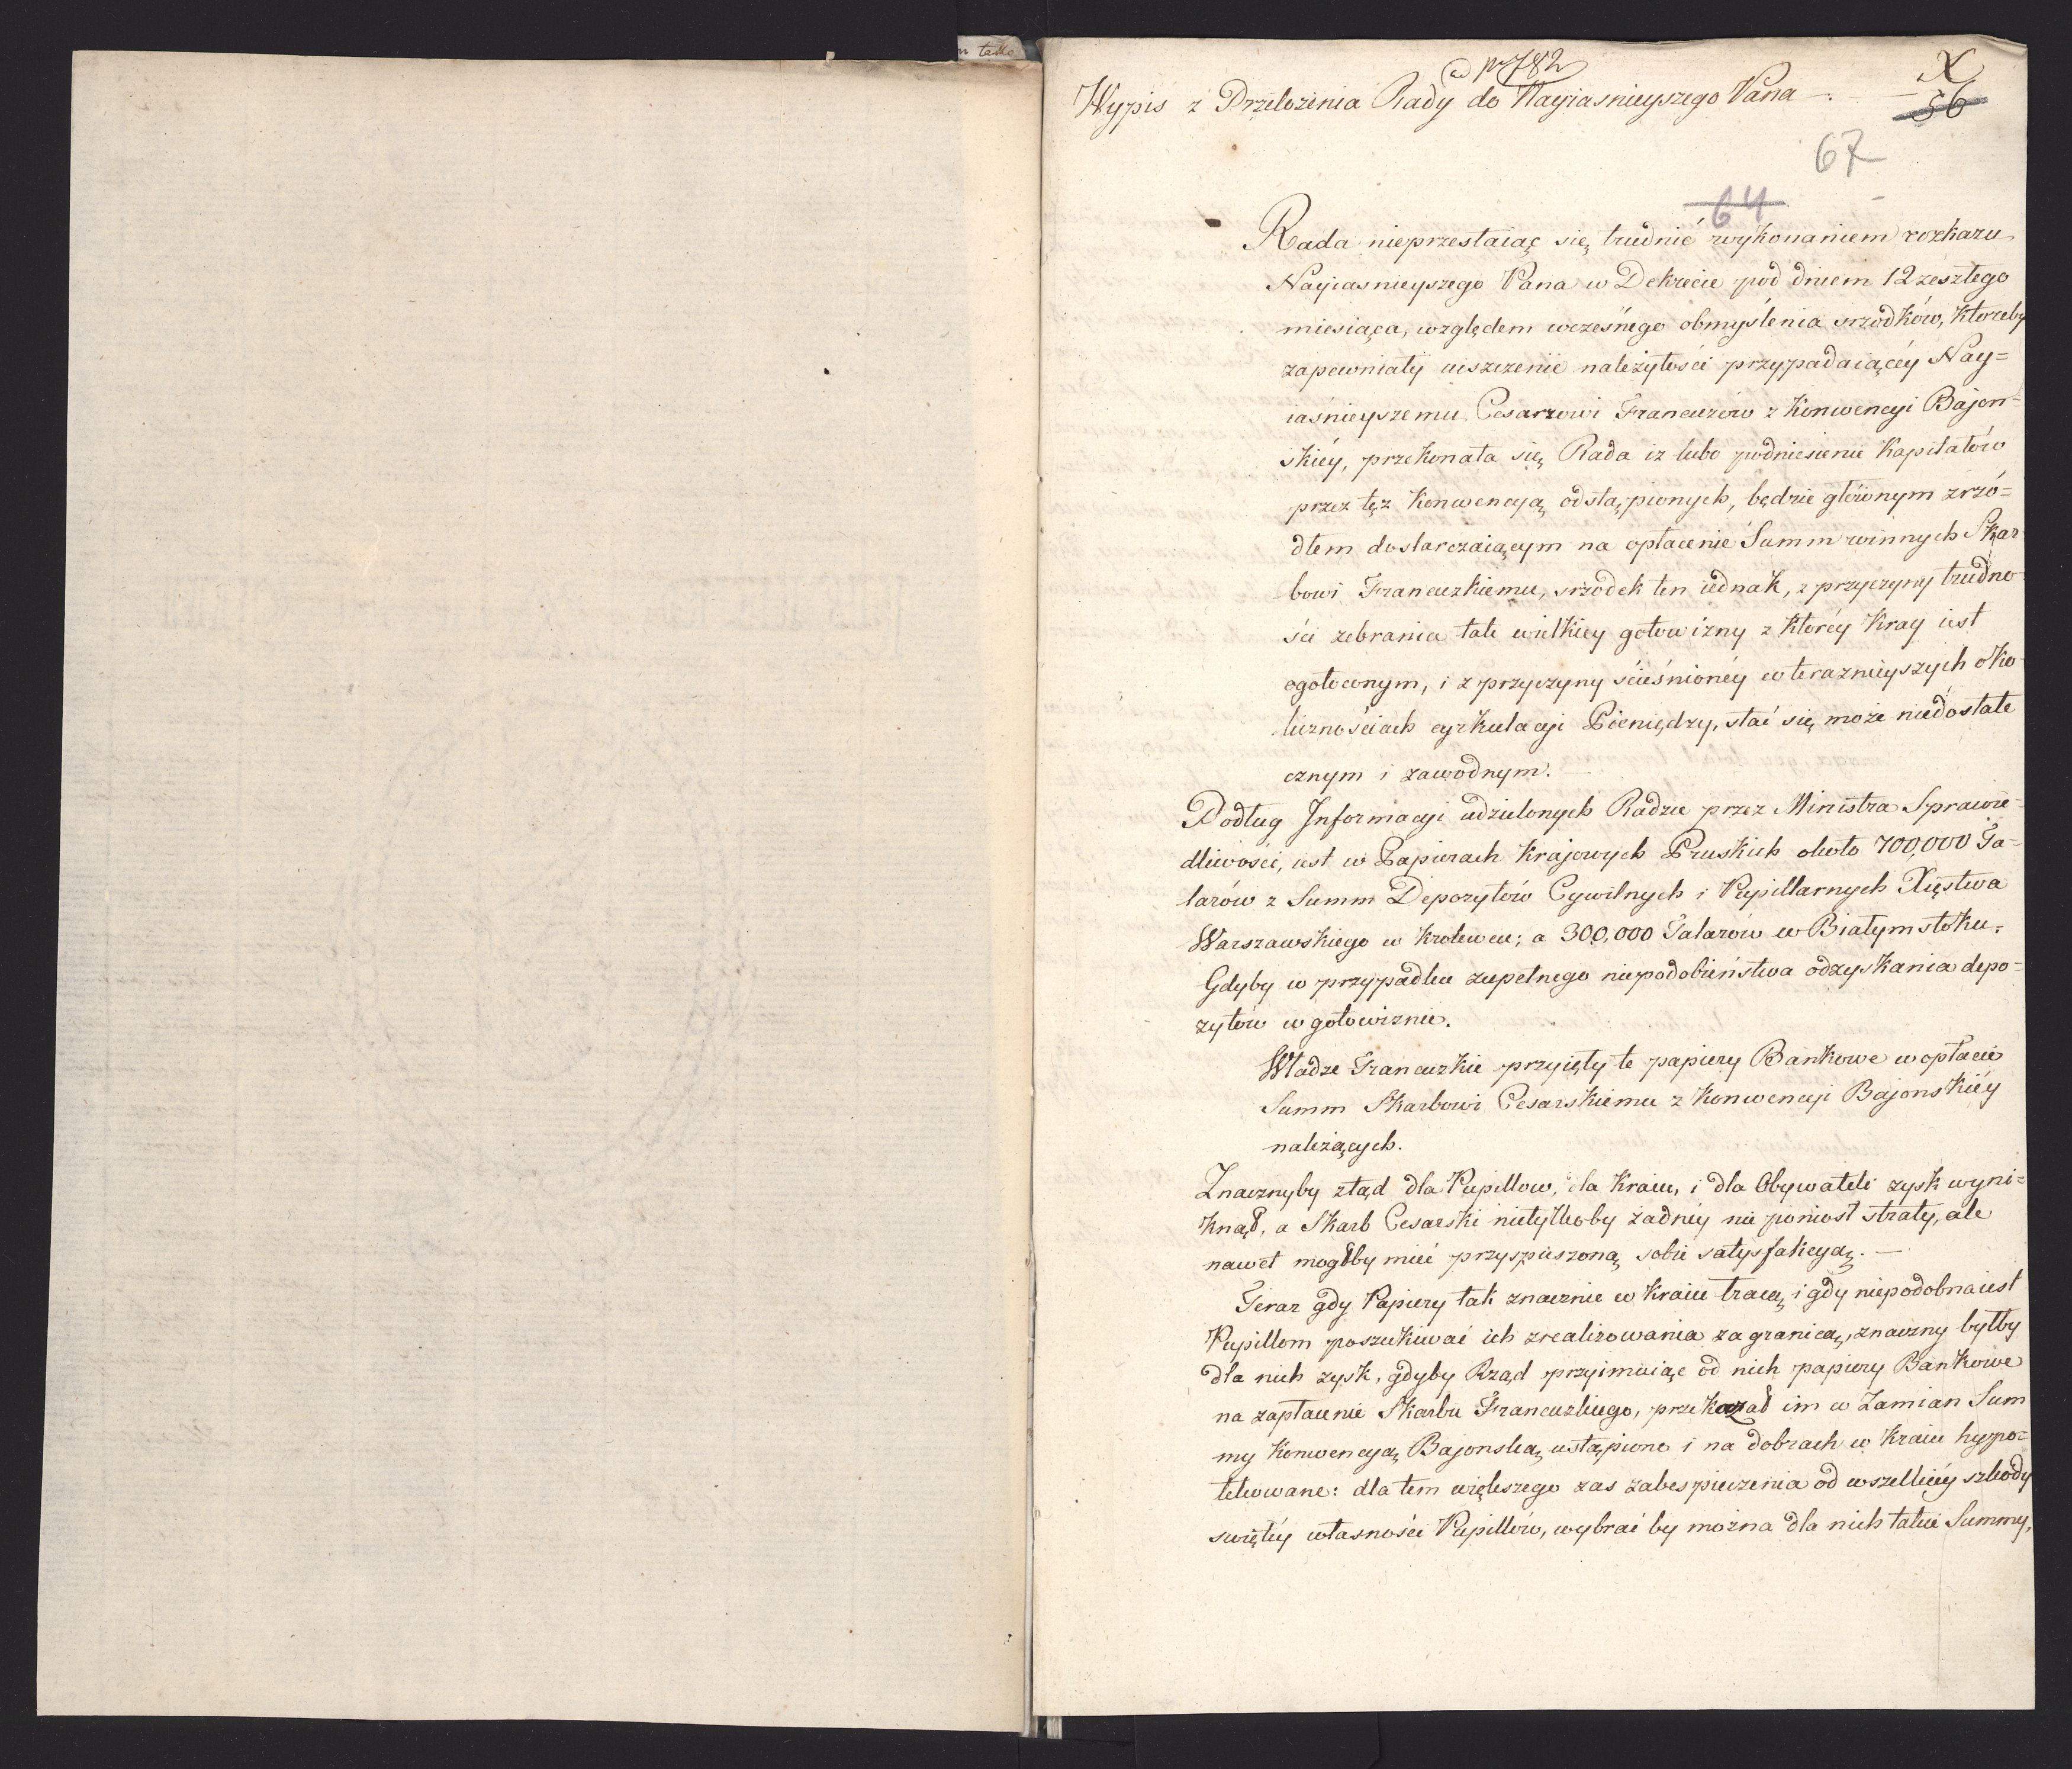 ad nr 782
X
Wypis z Przełożenia Rady do Nayiasnieyszego Pana —.
56
67
64
Rada nieprzestaiąc się trudnić wykonaniem rozkazu
Nayiasnieyszego Pana w Dekrecie pod dniem 12 zeszłego
miesiąca, względem wczesnego obmyślenia srzodków, któreby
zapewniały uiszczenie należytości przypadaiącéy Nay=
iaśnieyszemu Cesarzowi Francuzów z Konwencyi Bajon=
skiéy, przekonała się Rada iz lubo podniesienie Kapitałów
przez tęż Konwencyą odstąpionych, będzie głównym zrzó=
dłem dostarczaiącym na opłacenie Summ winnych Skar
bowi Francuzkiemu, srzodek ten iednak, z przyczyny trudno
ści zebrania tak wielkiey gotowizny z któréy Kray iest
ogołoconym, i z przyczyny ścieśnionéy w teraznieyszych oko
licznościach cyrkulacyi Pieniędzy, stać się może niedostate
cznym i zawodnym. —
Podług Informacyi udzielonych Radzie przez Ministra Sprawie=
dliwości, iest w Papierach Krajowych Pruskich około 700,000 Ta=
larów z Summ Depozytów Cywilnych i Pupillarnych Xięstwa
Warszawskiego w Krolewcu; a 300,000 Talarów w Białymstoku.
Gdyby w przypadku zupełnego niepodobieństwa odzyskania depo=
zytów w gotowiznie.
Władze Francuzkie przyięły te papiery Bankowe w opłacie
Summ Skarbowi Cesarskiemu z Konwencyi Bajonskiéy
należących.
Znacznyby ztąd dla Pupillow, dla Kraiu, i dla Obywateli zysk wyni=
knął, a Skarb Cesarski nietylkoby żadnéy nie poniosł straty, ale
nawet mogłby mieć przyspieszoną sobie satysfakcyą. —
Teraz gdy Papiery tak znacznie w Kraiu tracą, i gdy niepodobna iest
Pupillom poszukiwać ich zrealizowania za granicą, znaczny byłby
dla nich zysk, gdyby Rząd przyimuiąc od nich papiery Bankowe
na zapłacenie Skarbu Francuzkiego, przekazał im w Zamian Sum
my Konwencyą Bajonską ustąpione i na dobrach w Kraiu hypo=
tekowane: dla tem większego zas zabespieczenia od wszelkiéy szkody
swiętéy własności Pupillów, wybrać by można dla nich takie Summy,